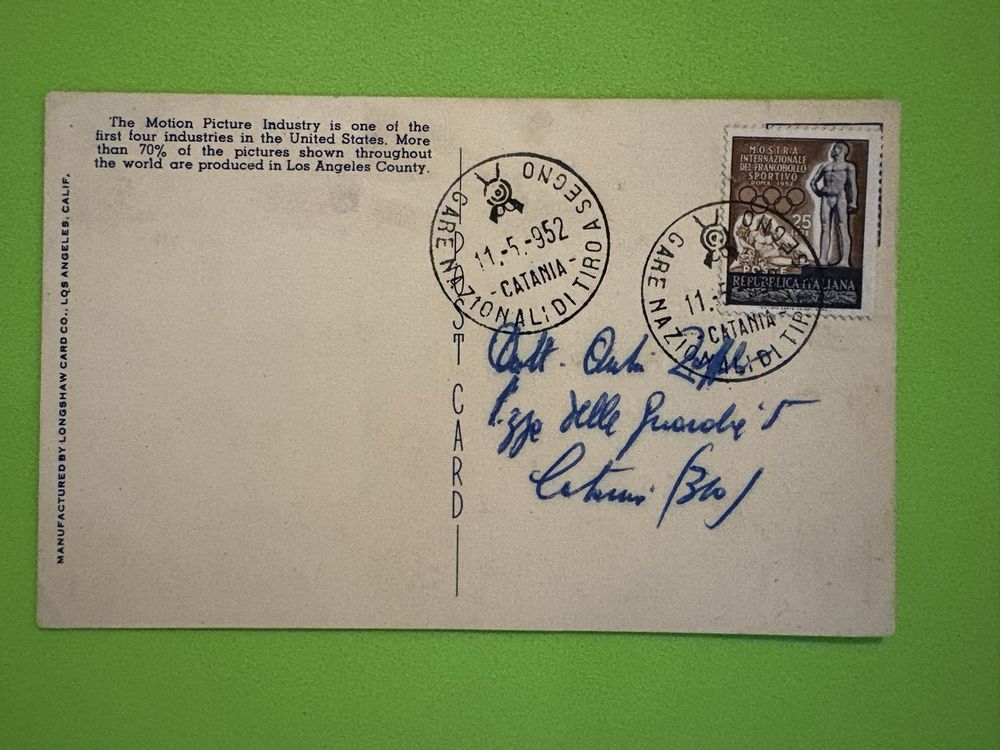 The Motion Picture Industry is one of the
first four industries in the United States. More
than 70% of the pictures shown throughout
the world are produced in Los Angeles County.
MANUFACTURED BY LONGSHAW CARD CO., LOS ANGELES, CALIF.
POST CARD
GARE NAZIONALI DI TIRO A SEGNO
11.-5.-952
-CATANIA-
MOSTRA
INTERNAZIONALE
DEL FRANCOBOLLO
SPORTIVO
ROMA 1952
25
POSTE
REPUBBLICA ITALIANA
GARE NAZIONALI DI TIRO A SEGNO
11.-
-CATANIA-
Dott.
P.zza delle Guardie 5
Catania